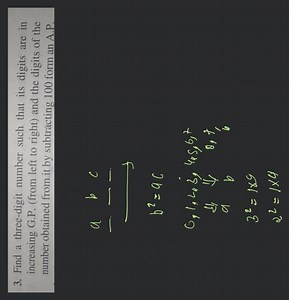 3. Find a three-digit number such that its digits are in
increasing G.P. (from left to right) and the digits of the
number obtained from it by subtracting 100 form an A.P.
a b c
b² = ac
0, 1, 2, 3, 4, 5, 6, 7
8, 9
a b
3² = 1×9
2² = 1×4